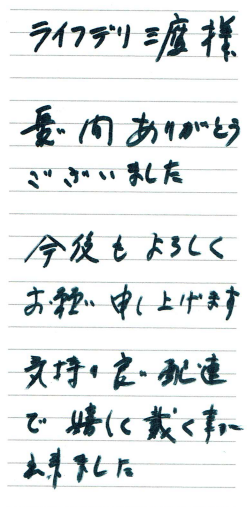 ライフデリ三鷹様
憂問ありがとう
ございました
今後もよろしく
お願い申し上げます
気持り良い配達
で嬉しく戴く事が
出来ました